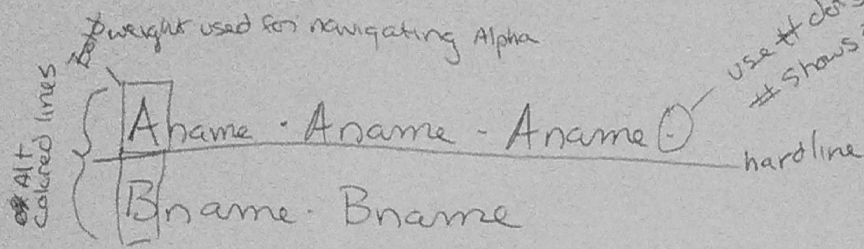 weight used for navigating Alpha
Alt
Colored lines
Aname · Aname - Aname
use # dots
# shows
hardline
Bname · Bname